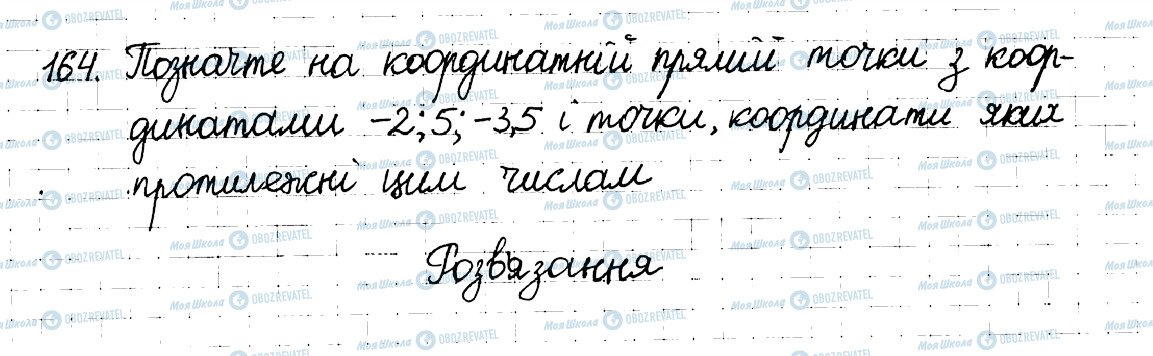 164. Позначте на координатній прямій точки з коор-
динатами -2; 5; -3,5 і точки, координати яких
протилежні цим числам
Розв'язання